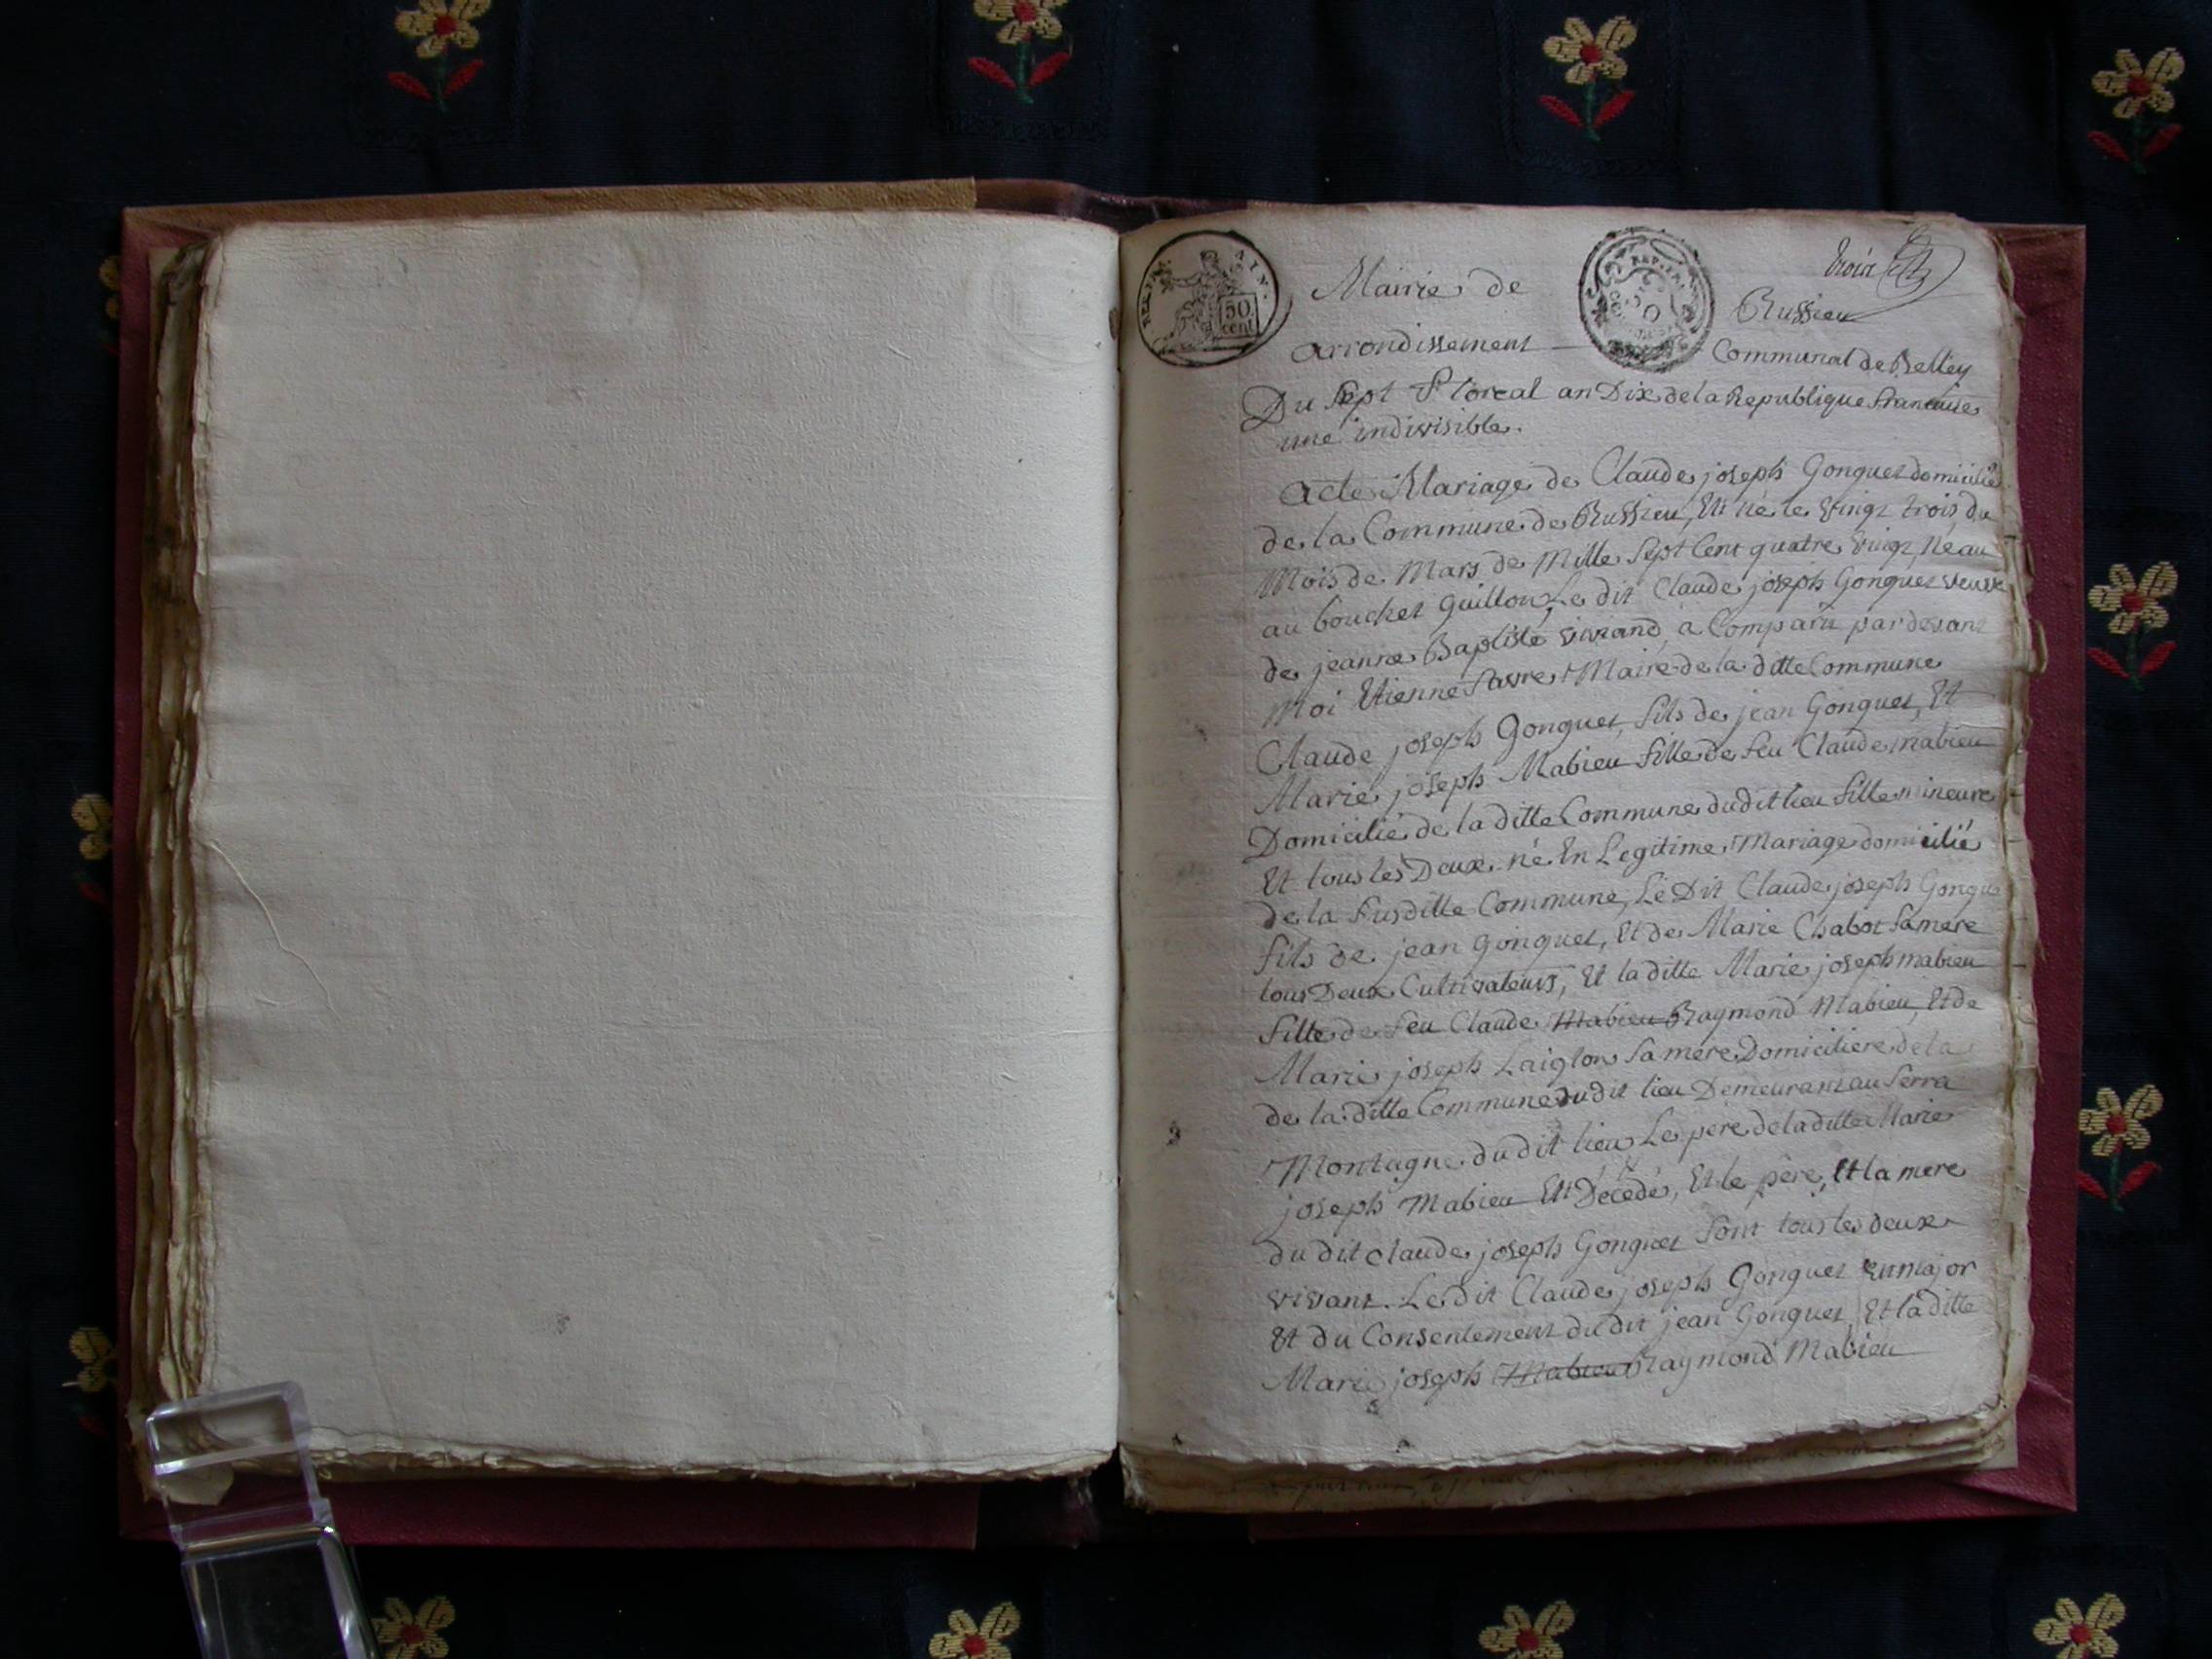 REP. FRA. AIN.
50 cent
REP. FRA.
trois
Mairie de Russieu
arrondissement Communal de Belley
Du Sept Floreal an Dix de la Republique francaise
une indivisible.
acte Mariage de Claude joseph Gonguet domicilié
de la Commune de Russieu, Et né le vingt trois du
Mois de Mars de Mille Sept Cent quatre vingt, né au
au bouchet Guillon, Le dit Claude joseph Gonguet veuve
de jeanne Baptiste vivrand, a Comparu pardevant
Moi Etienne favre Maire de la ditte Commune
Claude joseph Gonguet, fils de jean Gonguet, Et
Marie joseph Mabieu fille de feu Claude mabieu
Domicilié de la ditte Commune dudit lieu fille mineure
Et tous les Deux né En Legitime Mariage domicilié
de la Susditte Commune, Le Dit Claude joseph Gongue
fils de jean Gonguet, Et de Marie Chabot Sa mere
tous Deux Cultivateurs, Et la ditte Marie joseph mabieu
fille de feu Claude Mabieu Raymond Mabieu, Et de
Marie joseph Laiglon Sa mere Domiciliere de la
de la ditte Commune dudit lieu Demeurant au Serra
Montagne du dit lieu Le pere de la ditte Marie
joseph Mabieu Est Décedé, Et le pere, Et la mere
du dit Claude joseph Gonguet Sont tous les deux
vivant. Le dit Claude joseph Gonguet En major
Et du Consentement du dit jean Gonguet, Et la ditte
Marie joseph Mabieu Raymond Mabieu